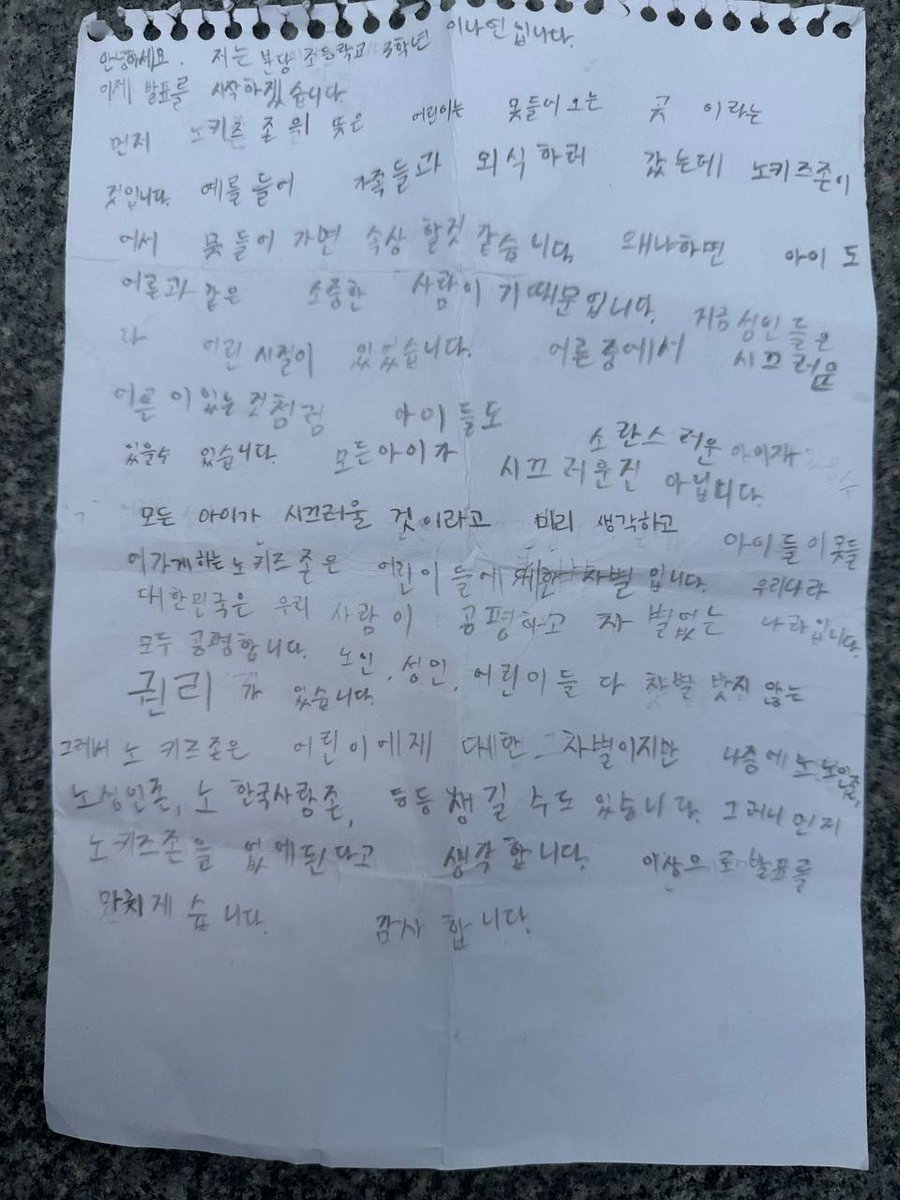 안녕하세요. 저는 분당 초등학교 3학년 이나연입니다.
이제 발표를 시작하겠습니다.
먼저 노키즈 존의 뜻은 어린이는 못들어오는 곳 이라는
것입니다. 예를 들어 가족들과 외식하러 갔는데 노키즈존이
어서 못들이 가면 속상 할것 같습니다. 왜냐하면 아이도
어른과 같은 소중한 사람이기때문입니다. 지금 성인들은
다 어린 시절이 있었습니다. 어른중에서 시끄러운
어른이 있는 것처럼 아이들도 소란스러운 아이가
있을수 있습니다. 모든아이가 시끄러운진 아닙니다.
모든 아이가 시끄러울 것이라고 미리 생각하고 아이들이 못들
어가게하는 노키즈 존은 어린이들에 대한 차별입니다. 우리나라
대한민국은 우리 사람이 공평하고 차별없는 나라입니다.
모두 공평합니다. 노인, 성인, 어린이들 다 차별 받지 않는
권리가 있습니다.
그래서 노 키즈존은 어린이에게 대한 차별이지만 나중에 노 노인존,
노성인존, 노 한국사람존, 등등 생길 수도 있습니다. 그러니 먼저
노키즈존을 없에된다고 생각합니다. 이상으로 발표를
마치게 습니다. 감사합니다.